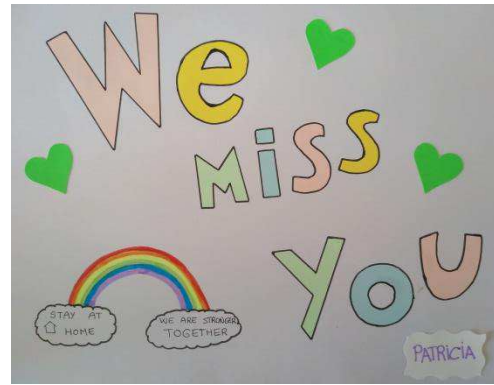 We
Miss
You
STAY AT
HOME
WE ARE STRONGER
TOGETHER
PATRICIA